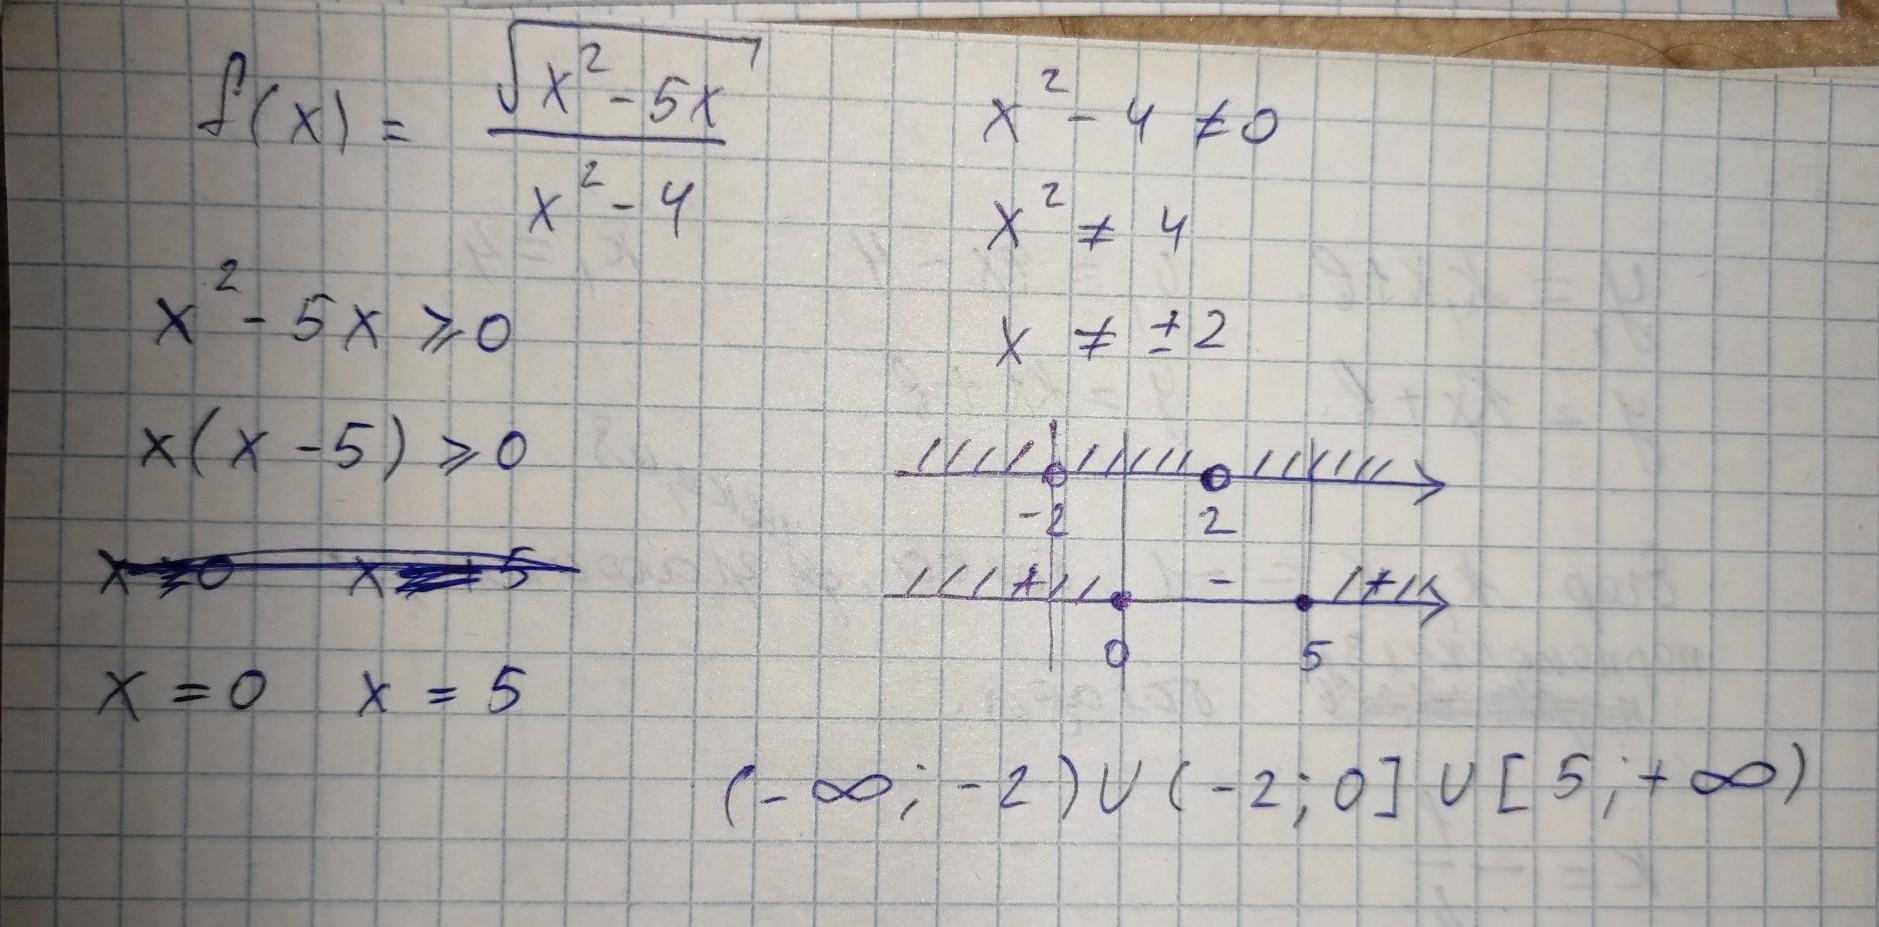 f(x) = √(x² - 5x) / (x² - 4)
x² - 5x ⩾ 0
x(x - 5) ⩾ 0
x = 0 x = 5
x² - 4 ≠ 0
x² ≠ 4
x ≠ ± 2
-2 2
+ - +
0 5
(-∞; -2) ∪ (-2; 0] ∪ [5; +∞)